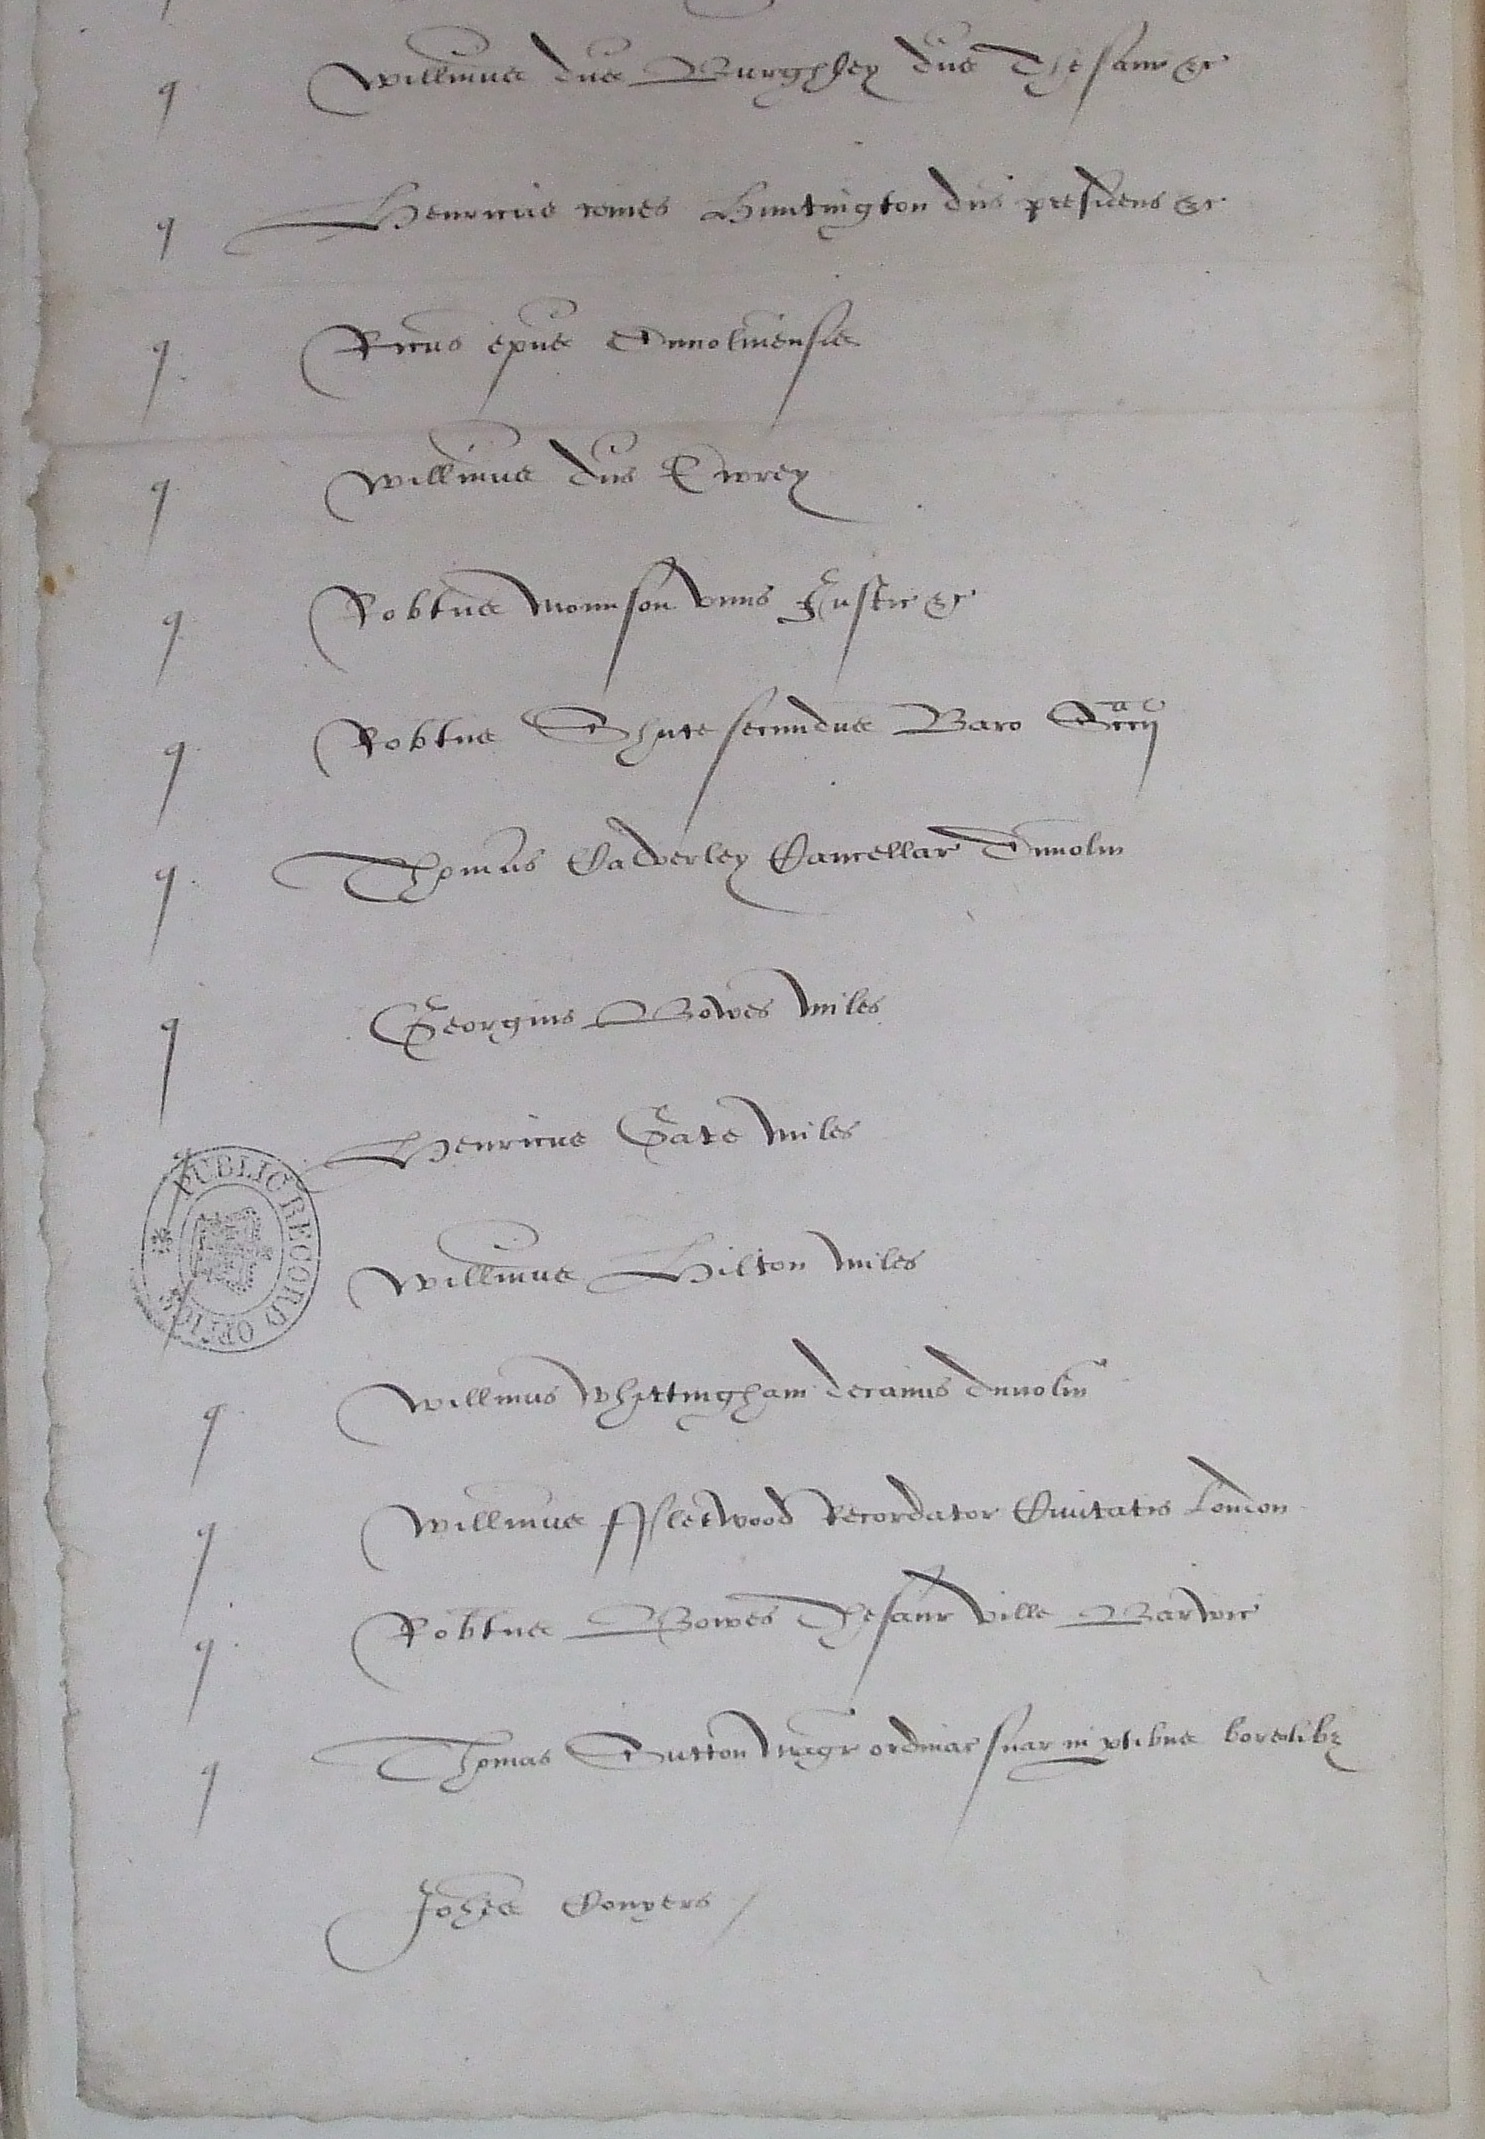 q Willmus dns Burghley dns Thesaur &c
q Henricus comes Huntington dns presidens &c
q Ricus epus Dunolmensis
q Willmus dns Ewrey
q Robtus Mounson unus Justic &c
q Robtus Shute secundus Baro Sccij
q Thomas Calverley Cancellar Dunolm
q Georgius Bowes miles
q Henricus Gate miles
q Willmus Hilton miles
q Willmus Whittingham decanus dunolm
q Willmus ffletwood Recordator Civitatis London
q Robtus Bowes Thesaur ville Barwic
q Thomas Sutton magr ordinac suar in ptibus borealibz
Johes Conyers /
PUBLIC RECORD OFFICE